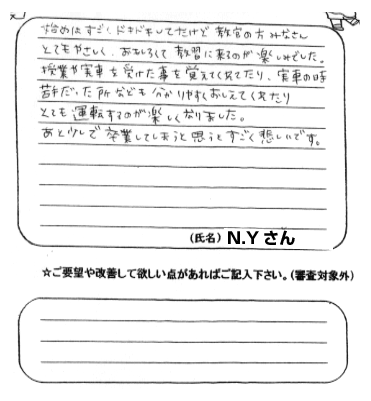 始めはすごくドキドキしてたけど教官の方みなさん
とてもやさしく、おもしろくて教習に来るのが楽しみでした。
授業や実車を受けた事を覚えてくれてたり、実車の時
苦手だった所なども分かりやすくおしえてくれたり
とても運転するのが楽しくなりました。
あと少しで卒業してしまうと思うとすごく悲しいです。
(氏名) N.Yさん
☆ご要望や改善して欲しい点があればご記入下さい。(審査対象外)